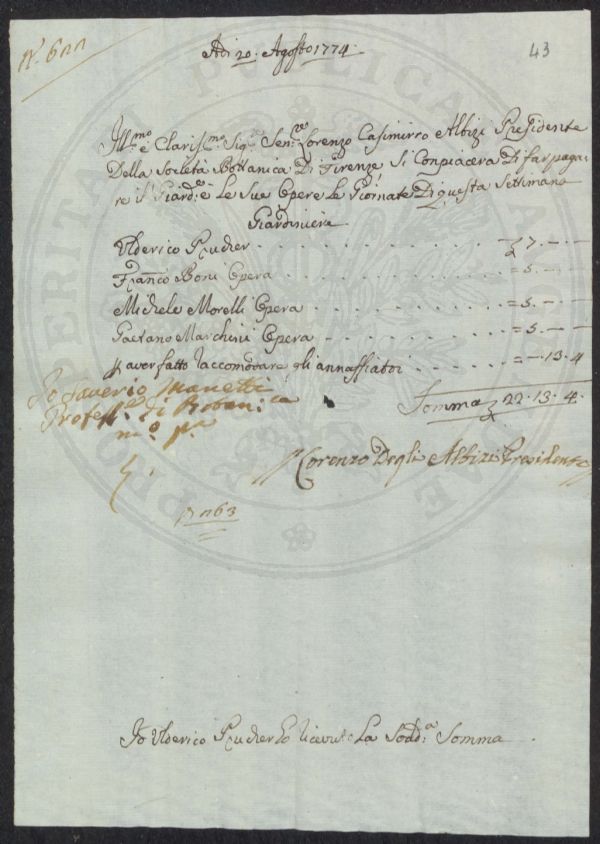 N.º 6
43
Adi 20. Agosto 1774.
Ill.mo e Claris.mo Sig.re Sen.re Lorenzo Casimirro Albizi Presidente
Della Società Bottanica Di Firenze, Si Conpiacera Di far paga=
re il Giard.e e Le Sue Opere Le Giornate Di questa Settimana
Giardiniere
Ulderico Prucher . . . . . . . . . 7. — . —
Fran.co Boni Opera . . . . . . . . . = 5. — . —
Michele Morelli Opera . . . . . . . . . = 5. — . —
Gaetano Marchini Opera . . . . . . . . . = 5. — . —
p aver fatto raccomodare gli annaffiatoi . . . . . = — . 13. 4
Somma 22. 13. 4.
Io Saverio Manetti
Profess.re di Botan.ca
m.o p.a
Lorenzo Degli Albizi Presidente
63
Io Ulderico Prucher ho ricevuto La Sodd.a Somma
PERITAT PUBLICAE